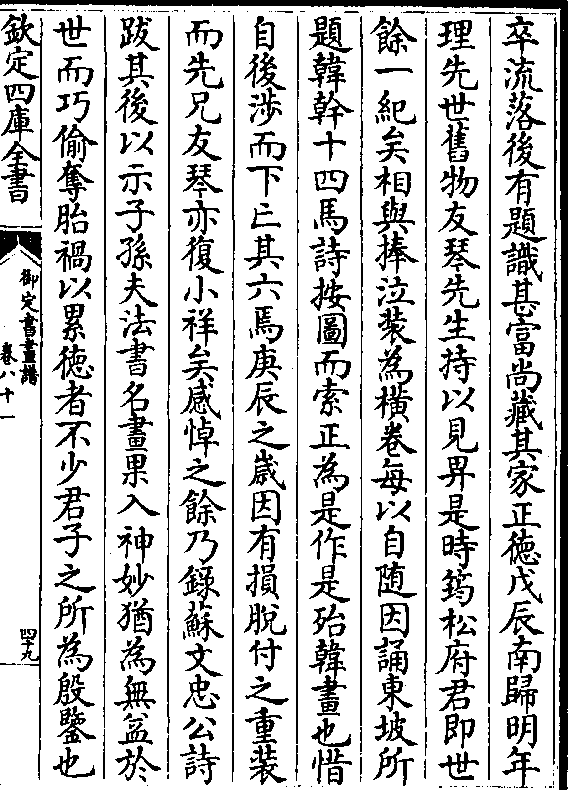 卒流落後有題識甚富尚藏其家正徳戊辰南歸明年
理先世舊物友琴先生持以見畀是時筠松府君即世
餘一紀矣相與捧泣装為横卷每以自随因誦東坡所
題韓幹十四馬詩按圖而索正為是作是殆韓畫也惜
自後涉而下亡其六馬庚辰之嵗因有損脫付之重装
而先兄友琴亦復小祥矣感悼之餘乃錄蘇文忠公詩
跋其後以示子孫夫法書名畫果入神妙猶為無益於
世而巧偷奪胎禍以累徳者不少君子之所為殷鑒也
欽定四庫全書
御定書畫譜
卷八十一
四十九